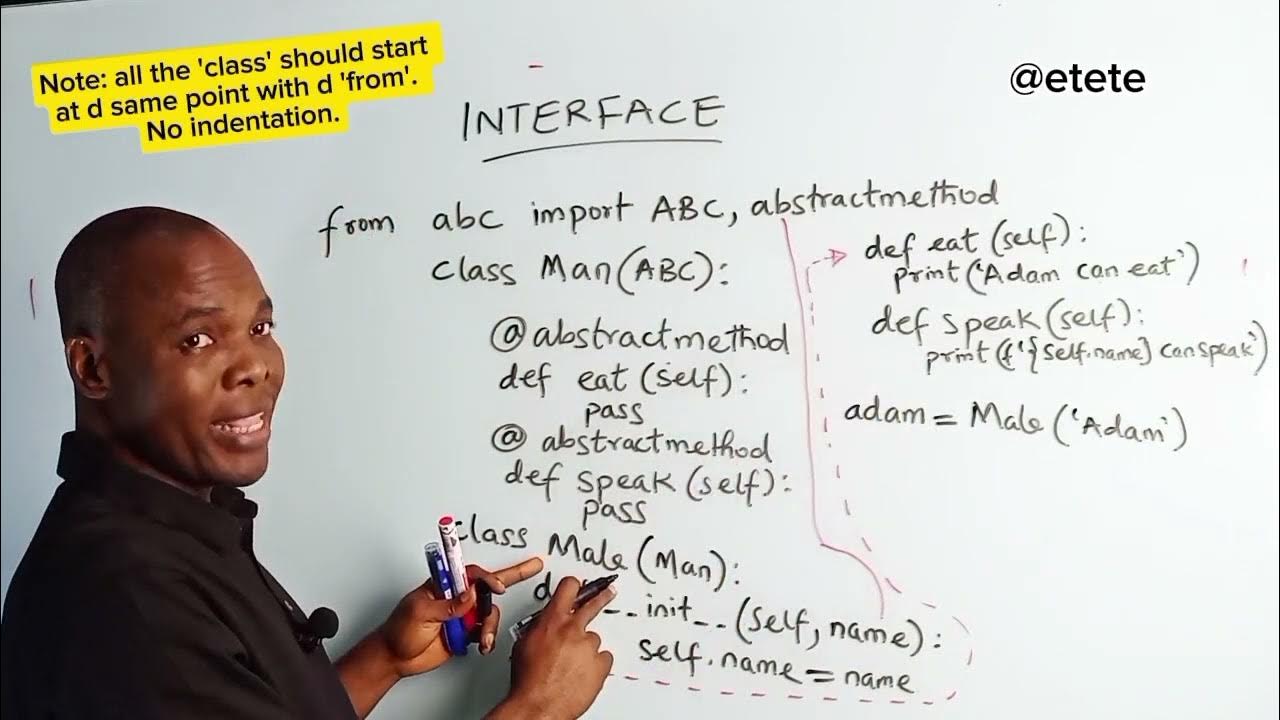 Note: all the 'class' should start
at d same point with d 'from'.
No indentation.
@etete
INTERFACE
from abc import ABC, abstractmethod
class Man(ABC):
@abstractmethod
def eat (self):
pass
@ abstractmethod
def speak (self):
pass
class Male (Man):
__init__(self, name):
self.name = name
def eat (self):
print('Adam can eat')
def speak (self):
print (f'{self.name} can speak')
adam = Male ('Adam')